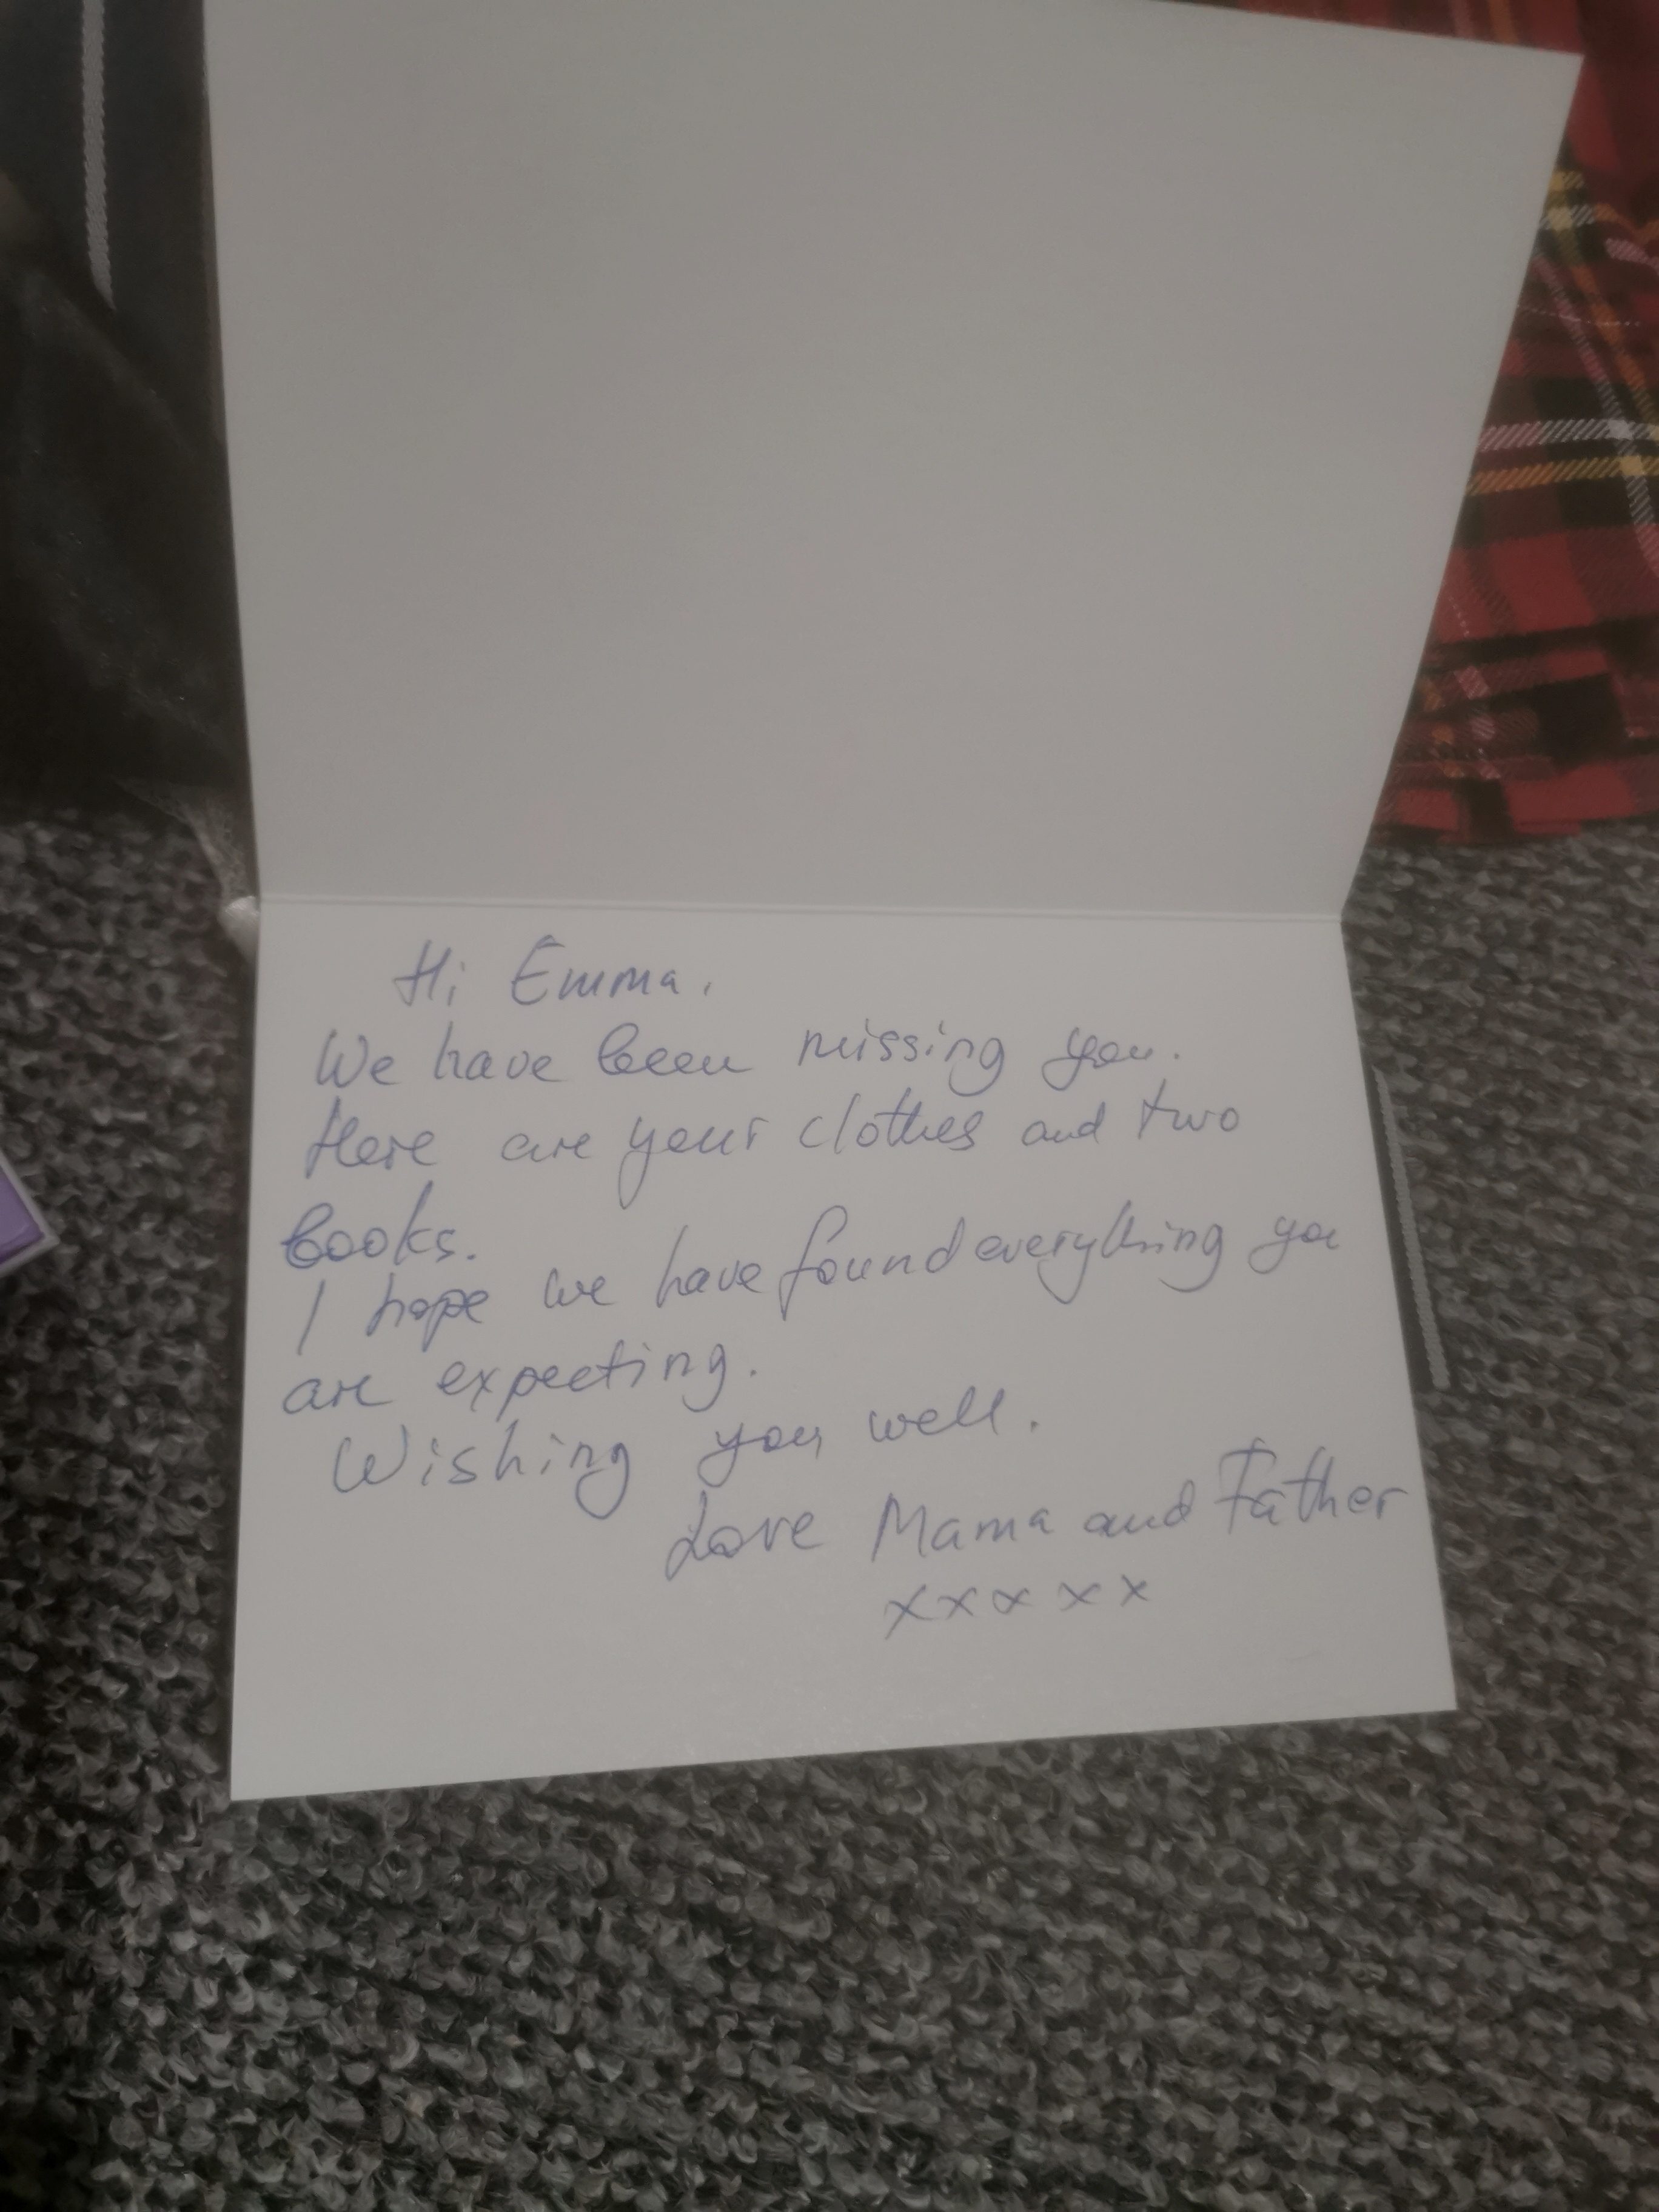 Hi Emma.
We have been missing you.
Here are your clothes and two
books.
I hope we have found everything you
are expecting.
Wishing you well.
Love Mama and Father
xxxxx